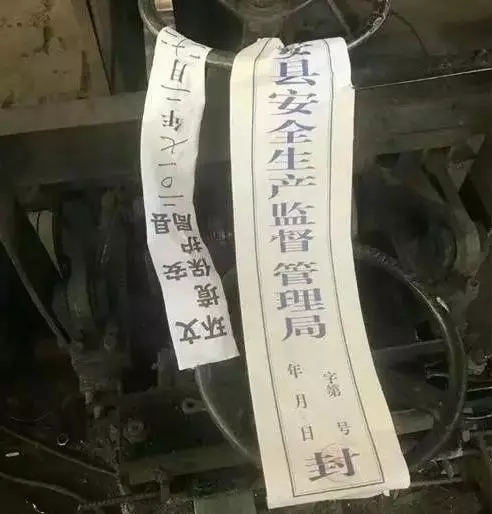 安县安全生产监督管理局
字第 号
年 月 日
封
文安县
环境保护局
二〇一七年二月